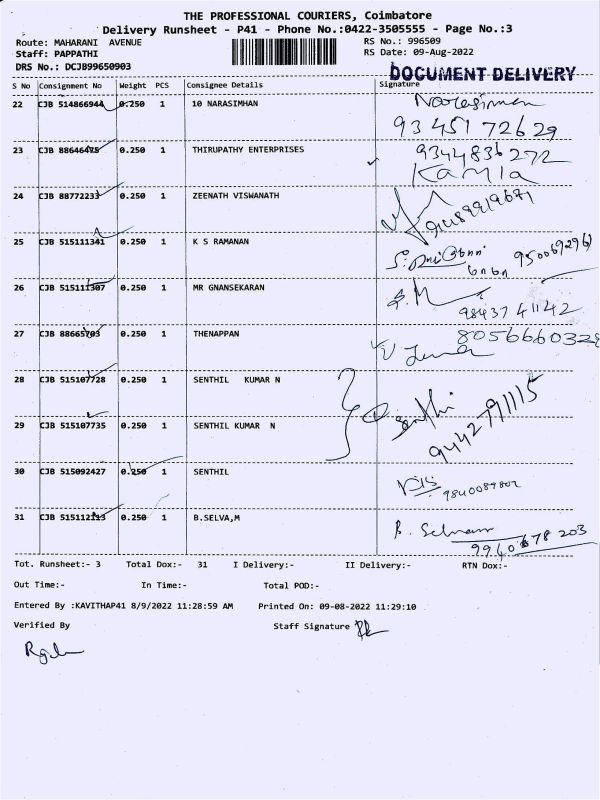 THE PROFESSIONAL COURIERS, Coimbatore
Delivery Runsheet - P41 - Phone No.:0422-3505555 - Page No.:3
Route: MAHARANI AVENUE RS No.: 996509
Staff: PAPPATHI RS Date: 09-Aug-2022
DRS No.: DCJB99650903
DOCUMENT DELIVERY
S No Consignment No Weight PCS Consignee Details Signature
22 CJB 514866944 0.250 1 10 NARASIMHAN
93451 72629
23 CJB 88646475 0.250 1 THIRUPATHY ENTERPRISES 9344836272
Kamla
24 CJB 88772233 0.250 1 ZEENATH VISWANATH
25 CJB 515111341 0.250 1 K S RAMANAN
26 CJB 515111307 0.250 1 MR GNANSEKARAN
98437 41142
27 CJB 88665703 0.250 1 THENAPPAN 8056660328
28 CJB 515107728 0.250 1 SENTHIL KUMAR N
Senthi
9442791115
29 CJB 515107735 0.250 1 SENTHIL KUMAR N
30 CJB 515092427 0.250 1 SENTHIL
9840089802
31 CJB 515112113 0.250 1 B.SELVA,M B. Selvam
9940678203
Tot. Runsheet:- 3 Total Dox:- 31 I Delivery:- II Delivery:- RTN Dox:-
Out Time:- In Time:- Total POD:-
Entered By :KAVITHAP41 8/9/2022 11:28:59 AM Printed On: 09-08-2022 11:29:10
Verified By Staff Signature